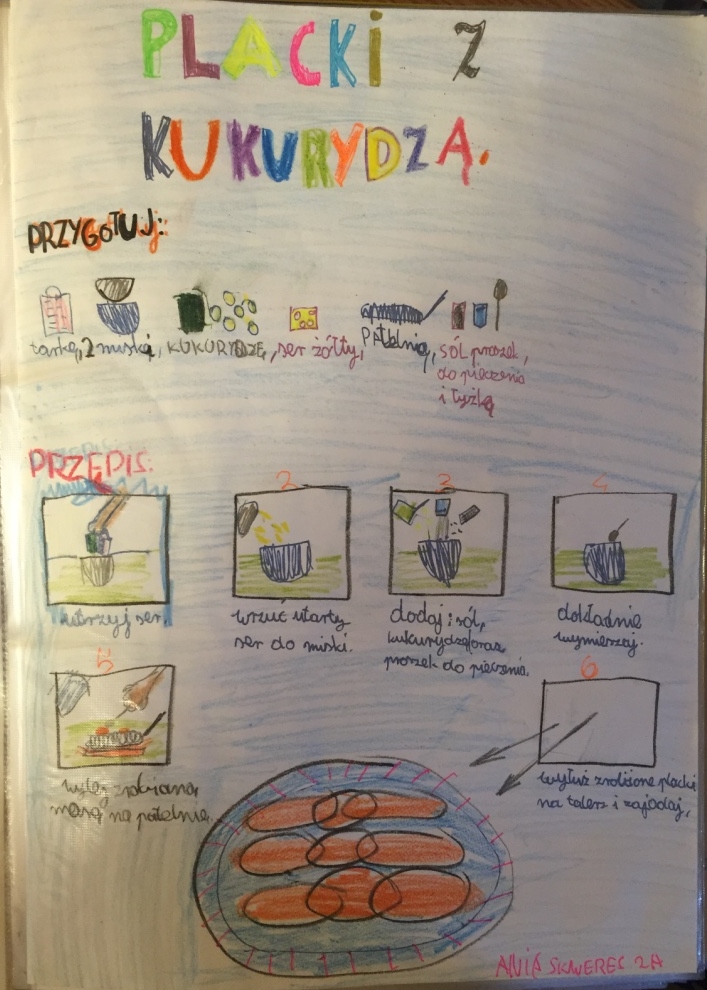 PLACKI Z
KUKURYDZĄ.
PRZYGOTUJ:
tarkę, 2 miski, KUKURYDZĘ, ser żółty, PATELNIĄ, sól proszek,
do pieczenia
i łyżką
PRZEPIS:
2 3 4
utrzyj ser.
wrzuć utarty
ser do miski.
dodaj: sól,
kukurydzę oraz
proszek do pieczenia.
dokładnie
wymierzaj.
5
wylej zrobioną
masą na patelnie.
6
wyłuż zrobione placki
na talerz i zajadaj,
ANIA SKWEREC 2A